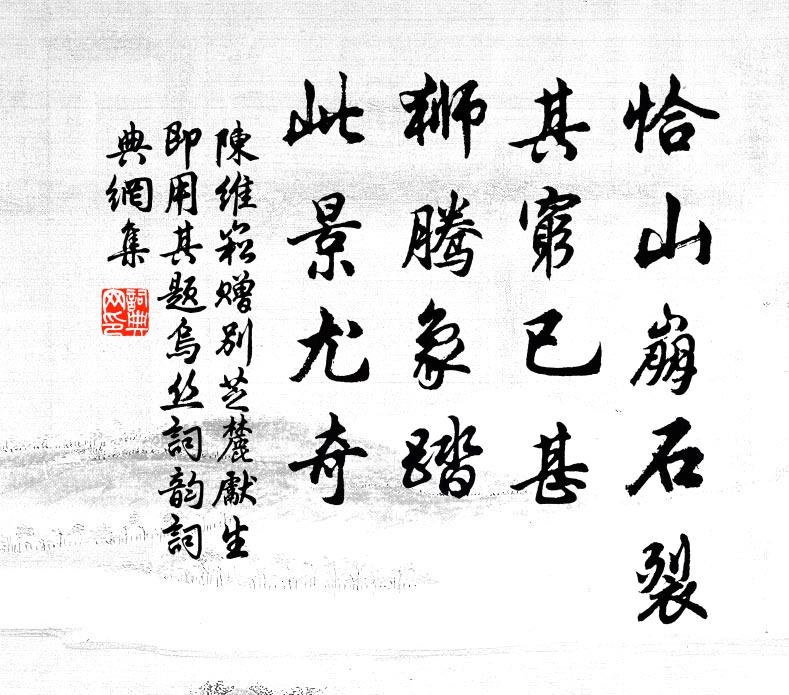 恰山崩石裂
其窮已甚
獅騰象踏
此景尤奇
陳維崧赠别芝麓獻生
即用其题烏丝詞韵詞
典網集
詞典
网印